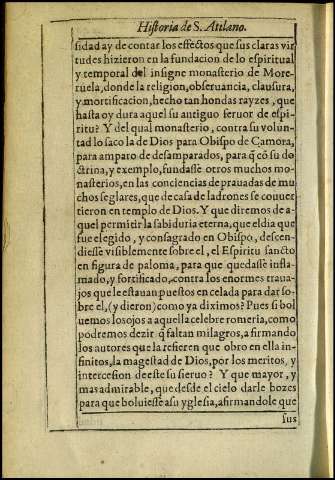 Historia de S. Atilano.
sidad ay de contar los effectos que sus claras vir
tudes hizieron en la fundacion de lo espiritual
y temporal del insigne monasterio de More-
ruela, donde la religion, obseruancia, clausura,
y mortificacion, hecho tan hondas rayzes, que
hasta oy dura aquel su antiguo feruor de espi-
ritu? Y del qual monasterio, contra su volun-
tad lo saco la de Dios para Obispo de Camora,
para amparo de desamparados, para q̃ cõ su do
ctrina, y exemplo, fundasse otros muchos mo-
nasterios, en las conciencias deprauadas de mu
chos seglares, que de casa de ladrones se conuer
tieron en templo de Dios. Y que diremos de a-
quel permitir la sabiduria eterna, que el dia que
fue elegido, y consagrado en Obispo, descen-
diesse visiblemente sobre el, el Espiritu sancto
en figura de paloma, para que quedasse infla-
mado, y fortificado, contra los enormes traua-
jos que le estauan puestos en celada para dar so-
bre el, (y dieron) como ya diximos? Pues si bol
uemos los ojos a aquella celebre romeria, como
podremos dezir q̃ faltan milagros, afirmando
los autores que la refieren que obro en ella in-
finitos, la magestad de Dios, por los meritos, y
intercesion de este su sieruo? Y que mayor, y
mas admirable, que desde el cielo darle bozes
para que boluiesse a su yglesia, afirmandole que
sus